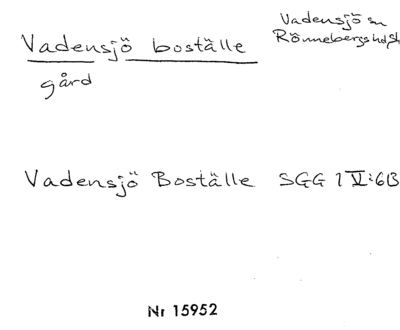 Vadensjö boställe
Vadensjö sn
Rönnebergs hd, Sk
gård
Vadensjö Boställe SGG 1 V:6B
Nr 15952